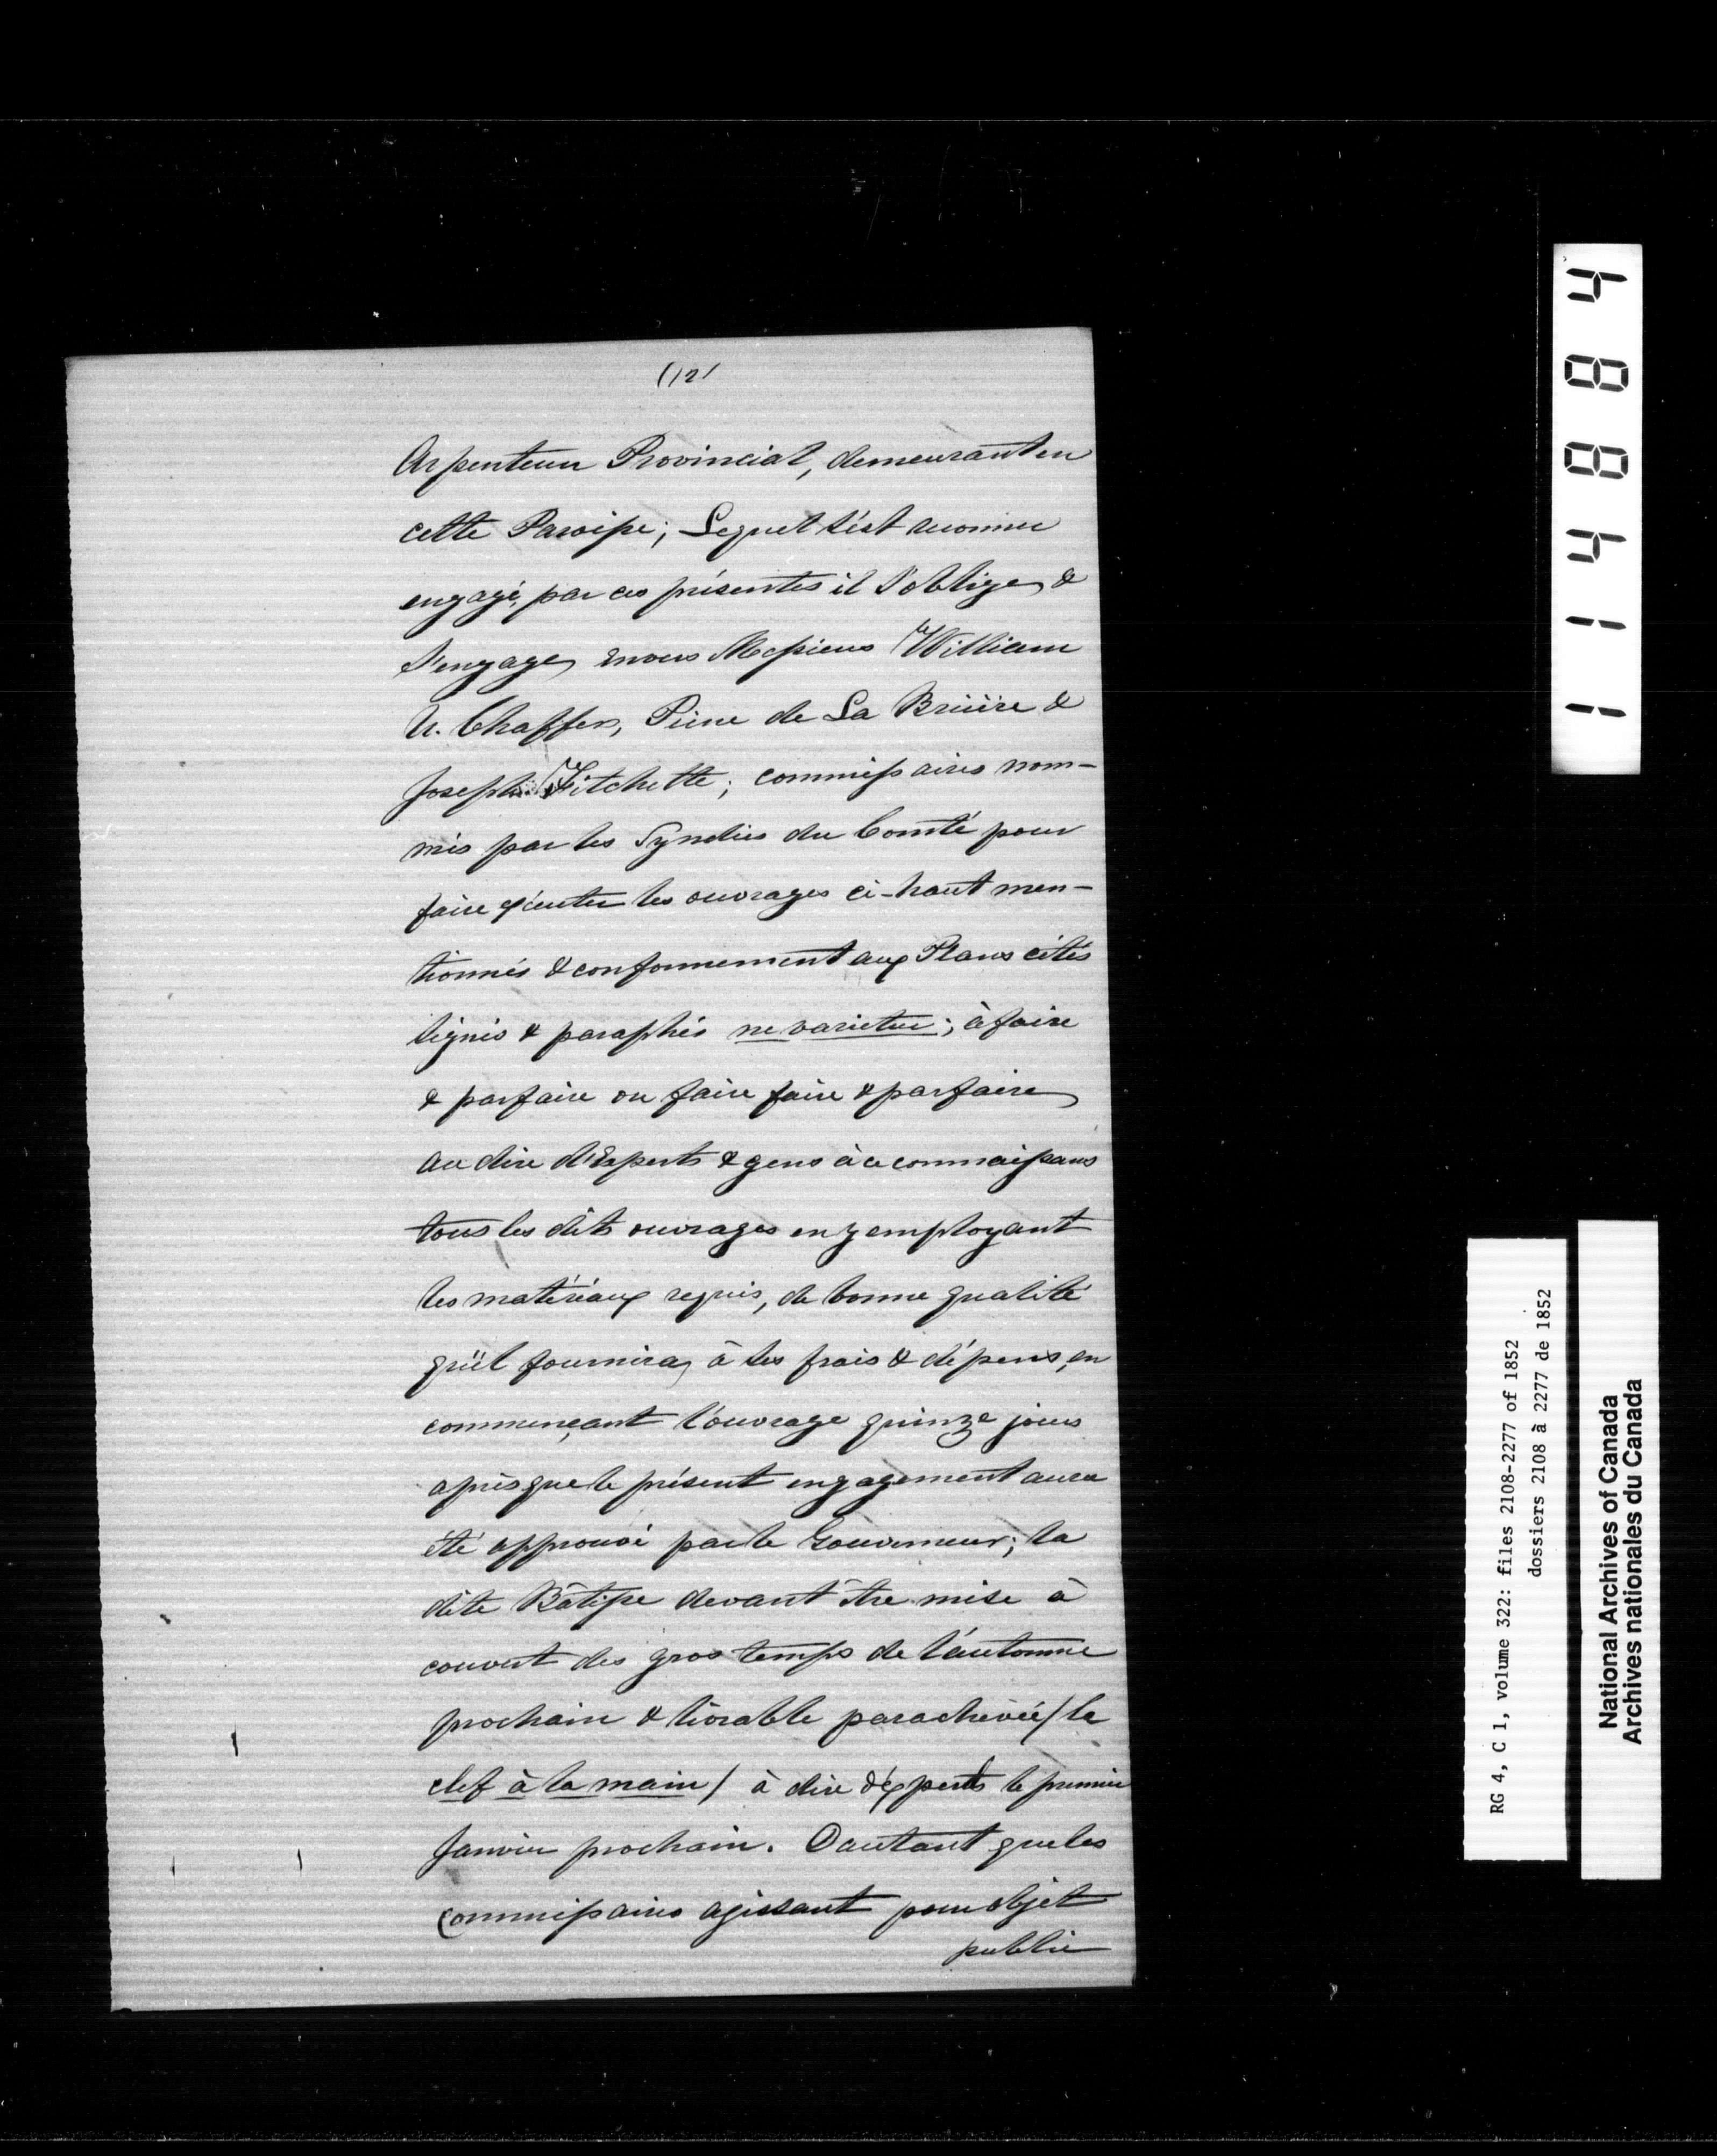 (12)
Arpenteur Provincial, demeurant en
cette Paroisse; Lequel s'est reconnu
engagé, par ces présentes il s'oblige &
s'engage envers Messieurs William
U. Chaffers, Pierre de La Bruière &
Joseph Fitchette; commissaires nom-
més par les Syndics du Comté pour
faire exécuter les ouvrages ci-haut men-
tionnés & conformement aux Plans cités
signés & paraphés ne varietur; à faire
& parfaire ou faire faire & parfaire
au dire d'Experts & gens à ce connaissans
tous les dits ouvrages en y employant
les matériaux requis, de bonne qualité
qu'il fournira, à ses frais & dépens, en
commençant l'ouvrage quinze jours
après que le présent engagement aura
été approuvé par le Gouverneur; la
dite Bâtisse devant être mise à
couvert des gros temps de l'automne
prochain & livrable parachevée / la
clef à la main / à dire d'experts le premier
Janvier prochain. D'autant que les
Commissaires agissant pour objet
public
1 1 4 8 8 4
RG 4, C 1, volume 322: files 2108-2277 of 1852
dossiers 2108 à 2277 de 1852
National Archives of Canada
Archives nationales du Canada